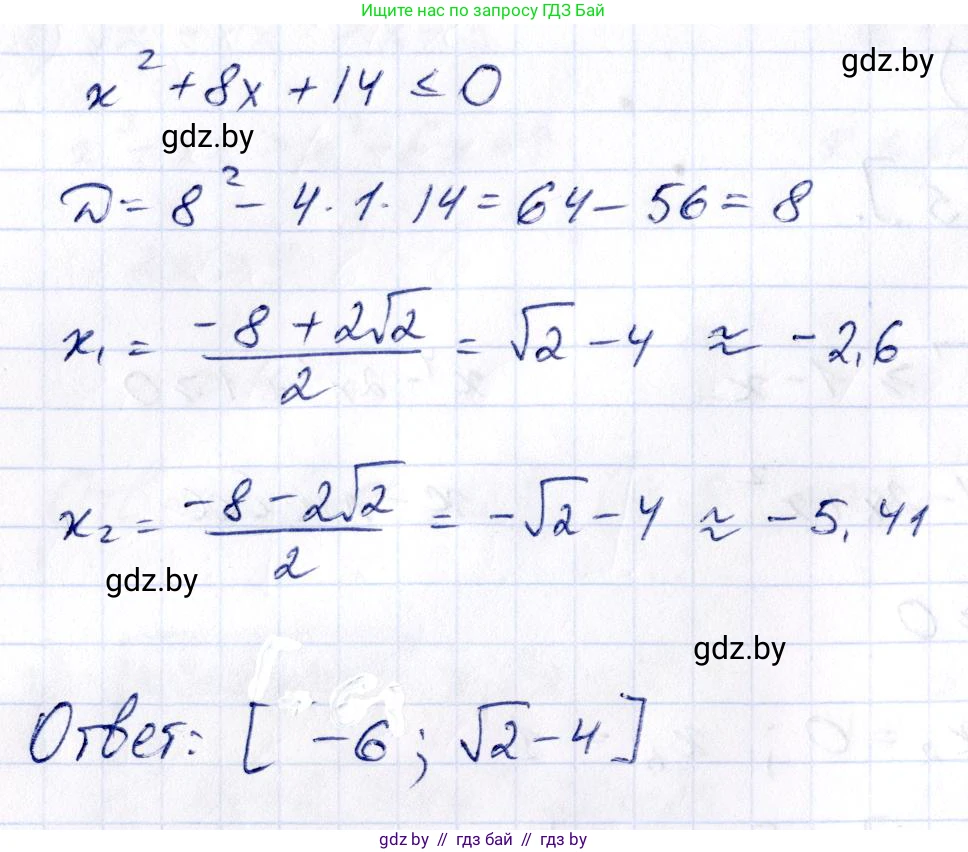 Ищите нас по запросу ГДЗ Бай
gdz.by
x² + 8x + 14 ≤ 0
gdz.by
D = 8² - 4 · 1 · 14 = 64 - 56 = 8
x₁ = (-8 + 2√2)/2 = √2 - 4 ≈ -2,6
x₂ = (-8 - 2√2)/2 = -√2 - 4 ≈ -5,41
gdz.by
gdz.by
Ответ: [ -6 ; √2 - 4 ]
gdz.by // гдз бай // гдз by